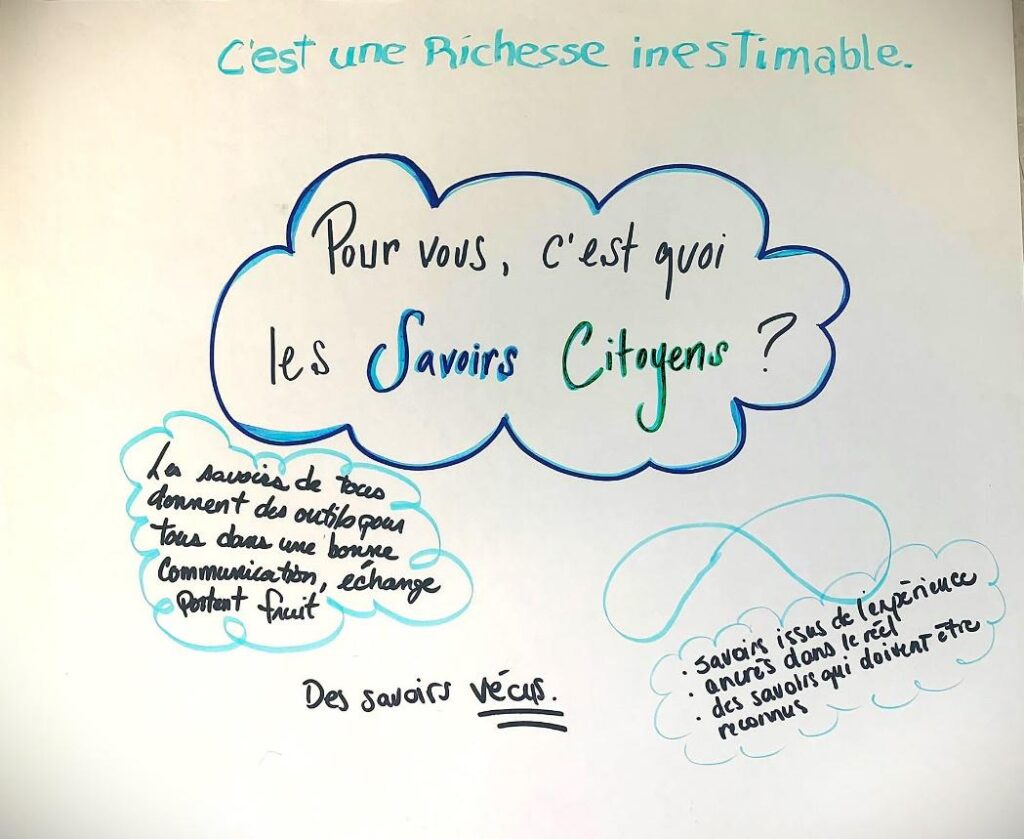 C'est une Richesse inestimable.
Pour vous, c'est quoi
les Savoirs Citoyens ?
Les savoirs de tous
donnent des outils pour
tous dans une bonne
communication, échange
portant fruit
Des savoirs vécus.
• savoirs issus de l'expérience
• ancrés dans le réel
• des savoirs qui doivent être
reconnus